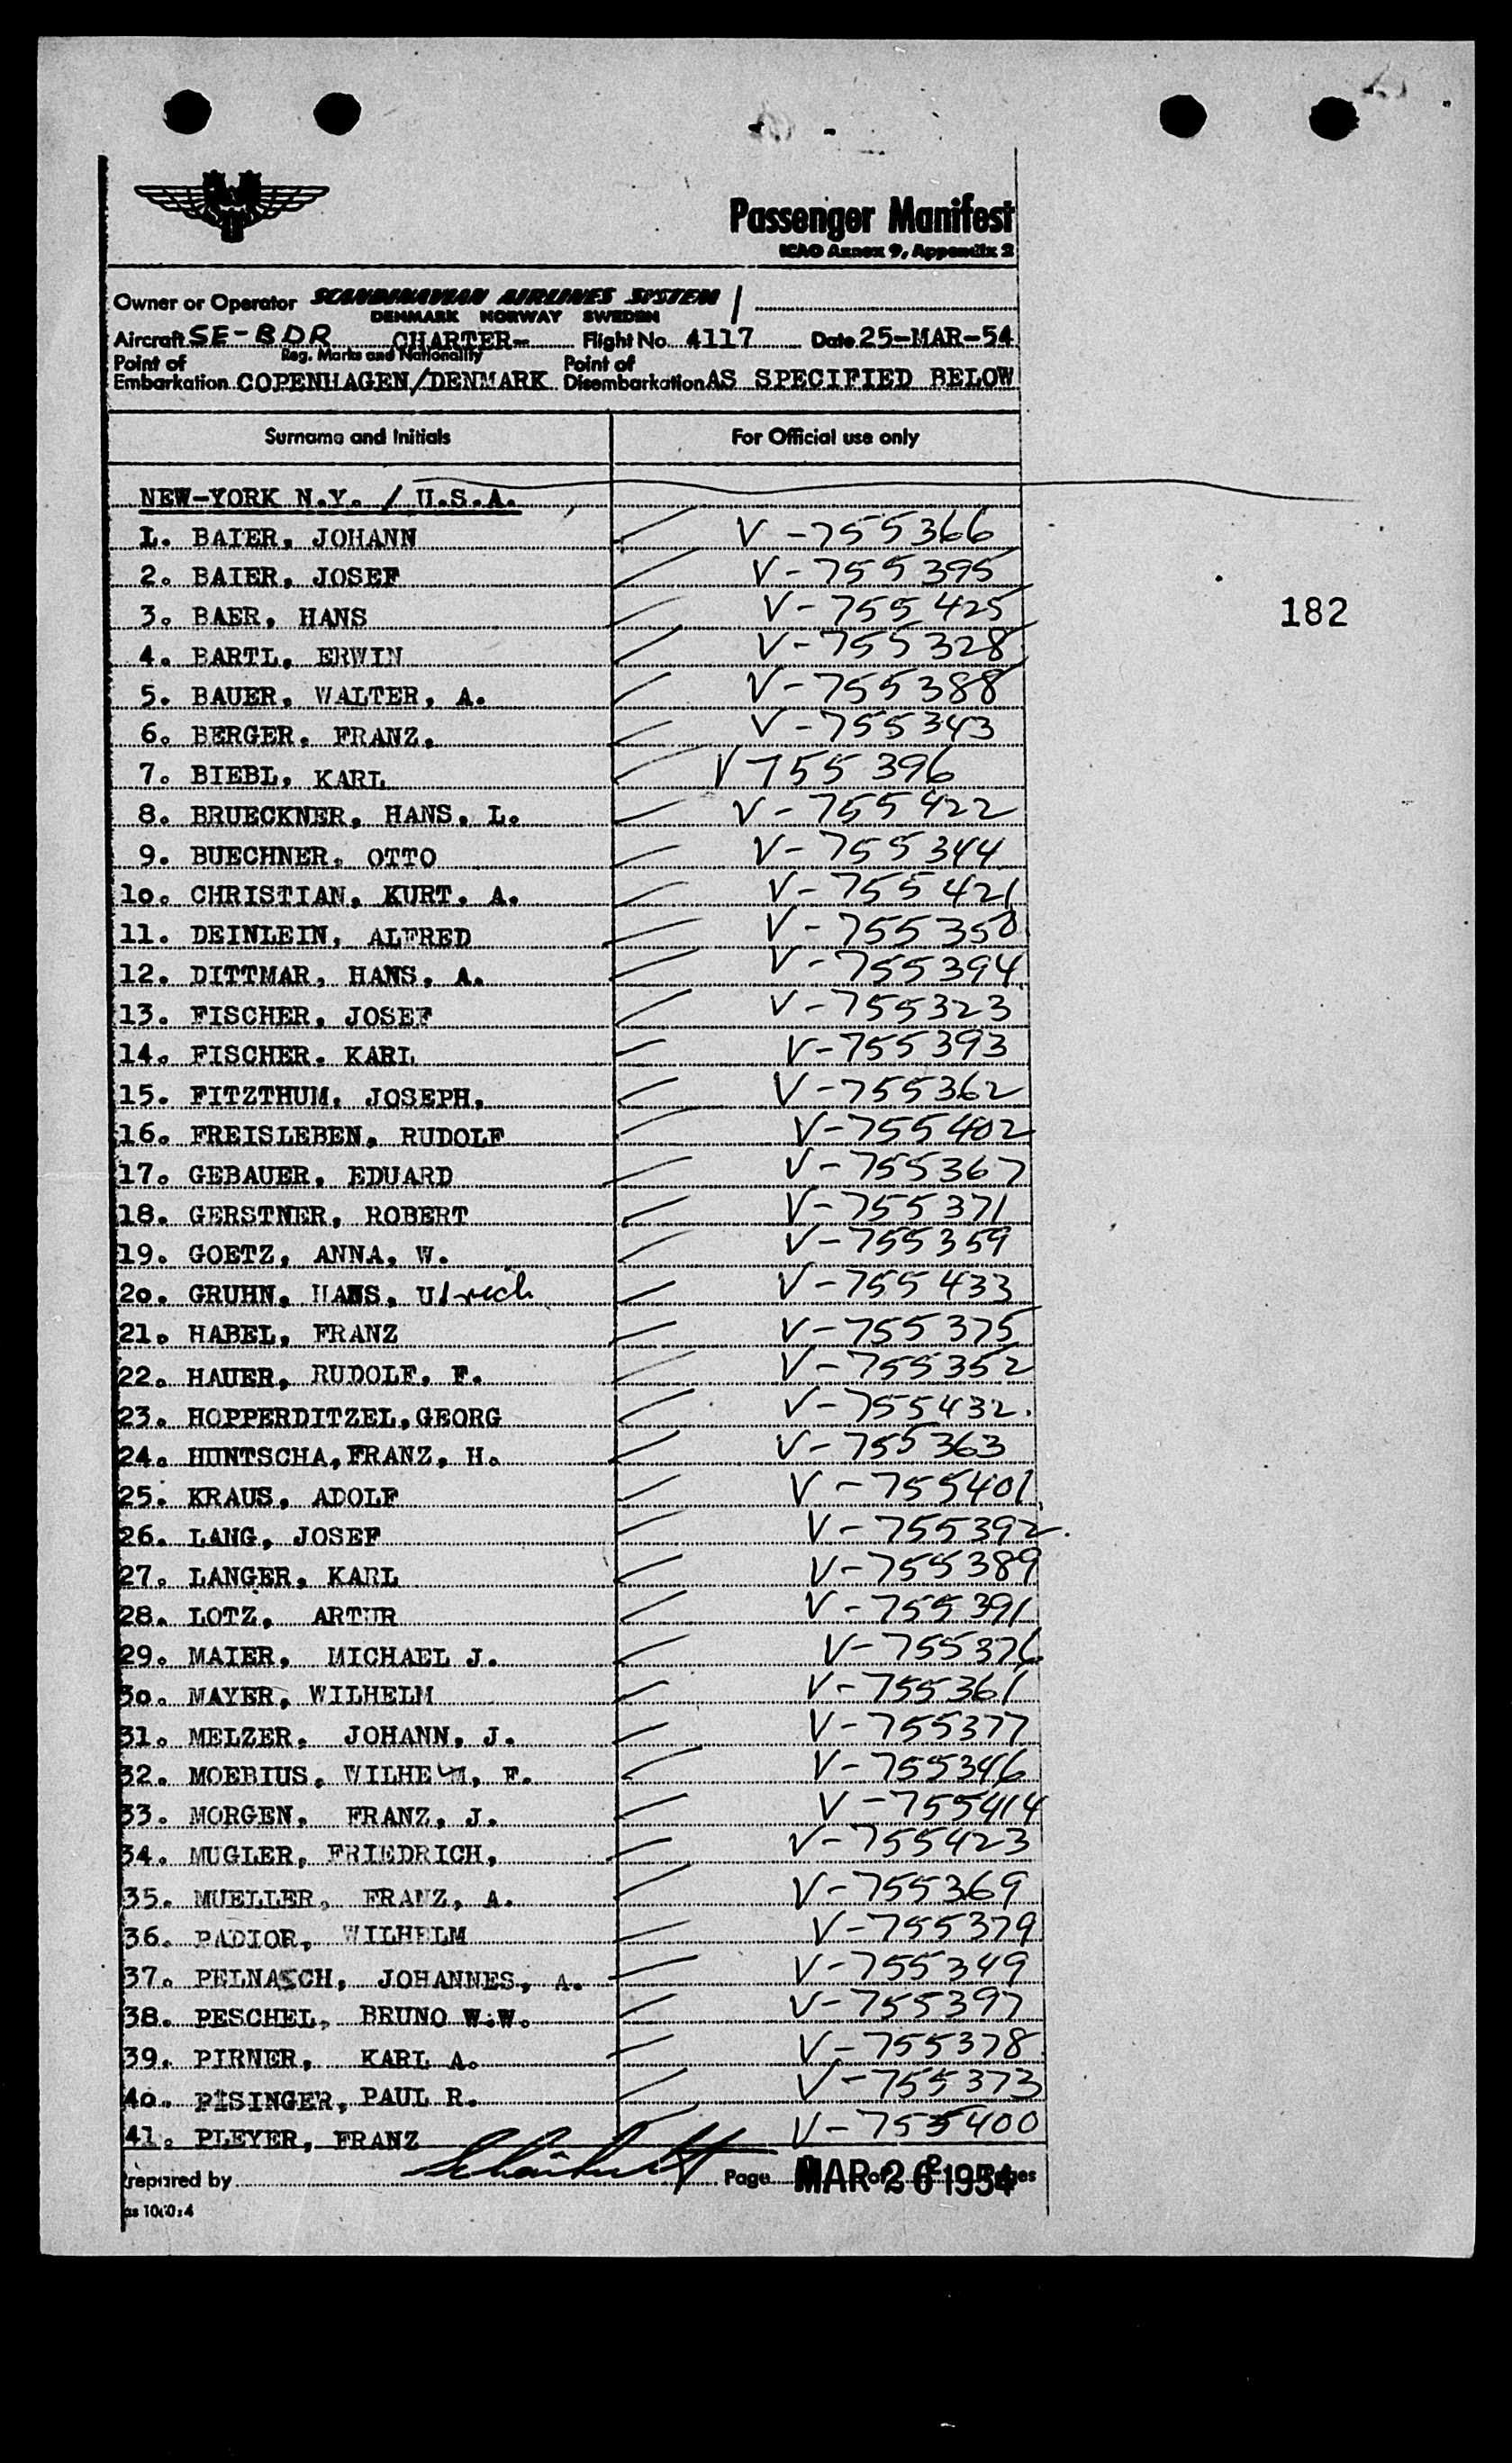 Passenger Manifest
ICAO Annex 9, Appendix 2
Owner or Operator SCANDINAVIAN AIRLINES SYSTEM
DENMARK NORWAY SWEDEN
Aircraft SE-BDR CHARTER- Flight No. 4117 Date 25-MAR-54
Reg. Marks and Nationality
Point of Embarkation COPENHAGEN/DENMARK Point of Disembarkation AS SPECIFIED BELOW
Surname and Initials For Official use only
NEW-YORK N.Y. / U.S.A.
1. BAIER, JOHANN V-755366
2. BAIER, JOSEF V-755395
3. BAER, HANS V-755425
182
4. BARTL, ERWIN V-755328
5. BAUER, WALTER, A. V-755388
6. BERGER, FRANZ, V-755343
7. BIEBL, KARL V 755396
8. BRUECKNER, HANS, L. V-755422
9. BUECHNER, OTTO V-755344
10. CHRISTIAN, KURT, A. V-755421
11. DEINLEIN, ALFRED V-755350
12. DITTMAR, HANS, A. V-755394
13. FISCHER, JOSEF V-755323
14. FISCHER, KARL V-755393
15. FITZTHUM, JOSEPH, V-755362
16. FREISLEBEN, RUDOLF V-755402
17. GEBAUER, EDUARD V-755367
18. GERSTNER, ROBERT V-755371
19. GOETZ, ANNA, W. V-755359
20. GRUHN, HANS, Ulrich V-755433
21. HABEL, FRANZ V-755375
22. HAUER, RUDOLF, F. V-755352
23. HOPPERDITZEL, GEORG V-755432.
24. HUNTSCHA, FRANZ, H. V-755363
25. KRAUS, ADOLF V-755401
26. LANG, JOSEF V-755392.
27. LANGER, KARL V-755389
28. LOTZ, ARTUR V-755391
29. MAIER, MICHAEL J. V-755376
30. MAYER, WILHELM V-755361
31. MELZER, JOHANN, J. V-755377
32. MOEBIUS, WILHELM, F. V-755346
33. MORGEN, FRANZ, J. V-755414
34. MUGLER, FRIEDRICH, V-755423
35. MUELLER, FRANZ, A. V-755369
36. PADIOR, WILHELM V-755379
37. PELNASCH, JOHANNES, A. V-755349
38. PESCHEL, BRUNO W.W. V-755397
39. PIRNER, KARL A. V-755378
40. PISINGER, PAUL R. V-755373
41. PLEYER, FRANZ V-755400
Prepared by Page of 2 Pages
MAR 26 1954